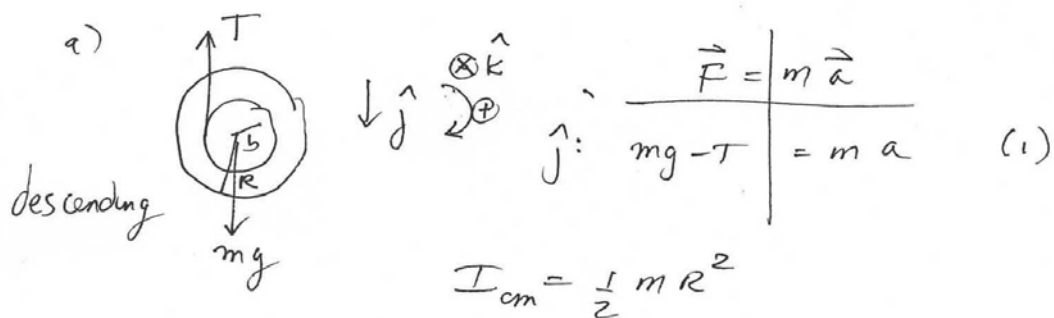 a)
T
b
R
mg
descending
ĵ
⊗ k̂
⊕
F⃗ = m a⃗
ĵ: mg - T = m a (1)
I_cm = 1/2 m R²